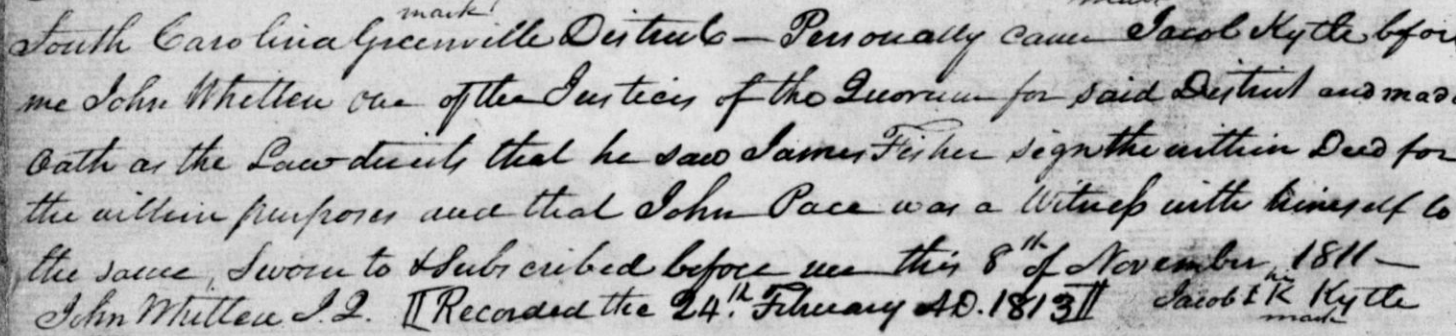 mark
South Carolina Greenville District — Personally came Jacob Kytle befor
me John Whitten one of the Justices of the Quorum for said District and mad
Oath as the Law directs that he saw James Fisher sign the within Deed for
the within purposes and that John Pace was a Witness with himself to
the same, Sworn to & Subscribed before me this 8th of November 1811 —
John Whitten J. Q. || Recorded the 24th. February AD. 1813 || Jacob his K mark Kytle